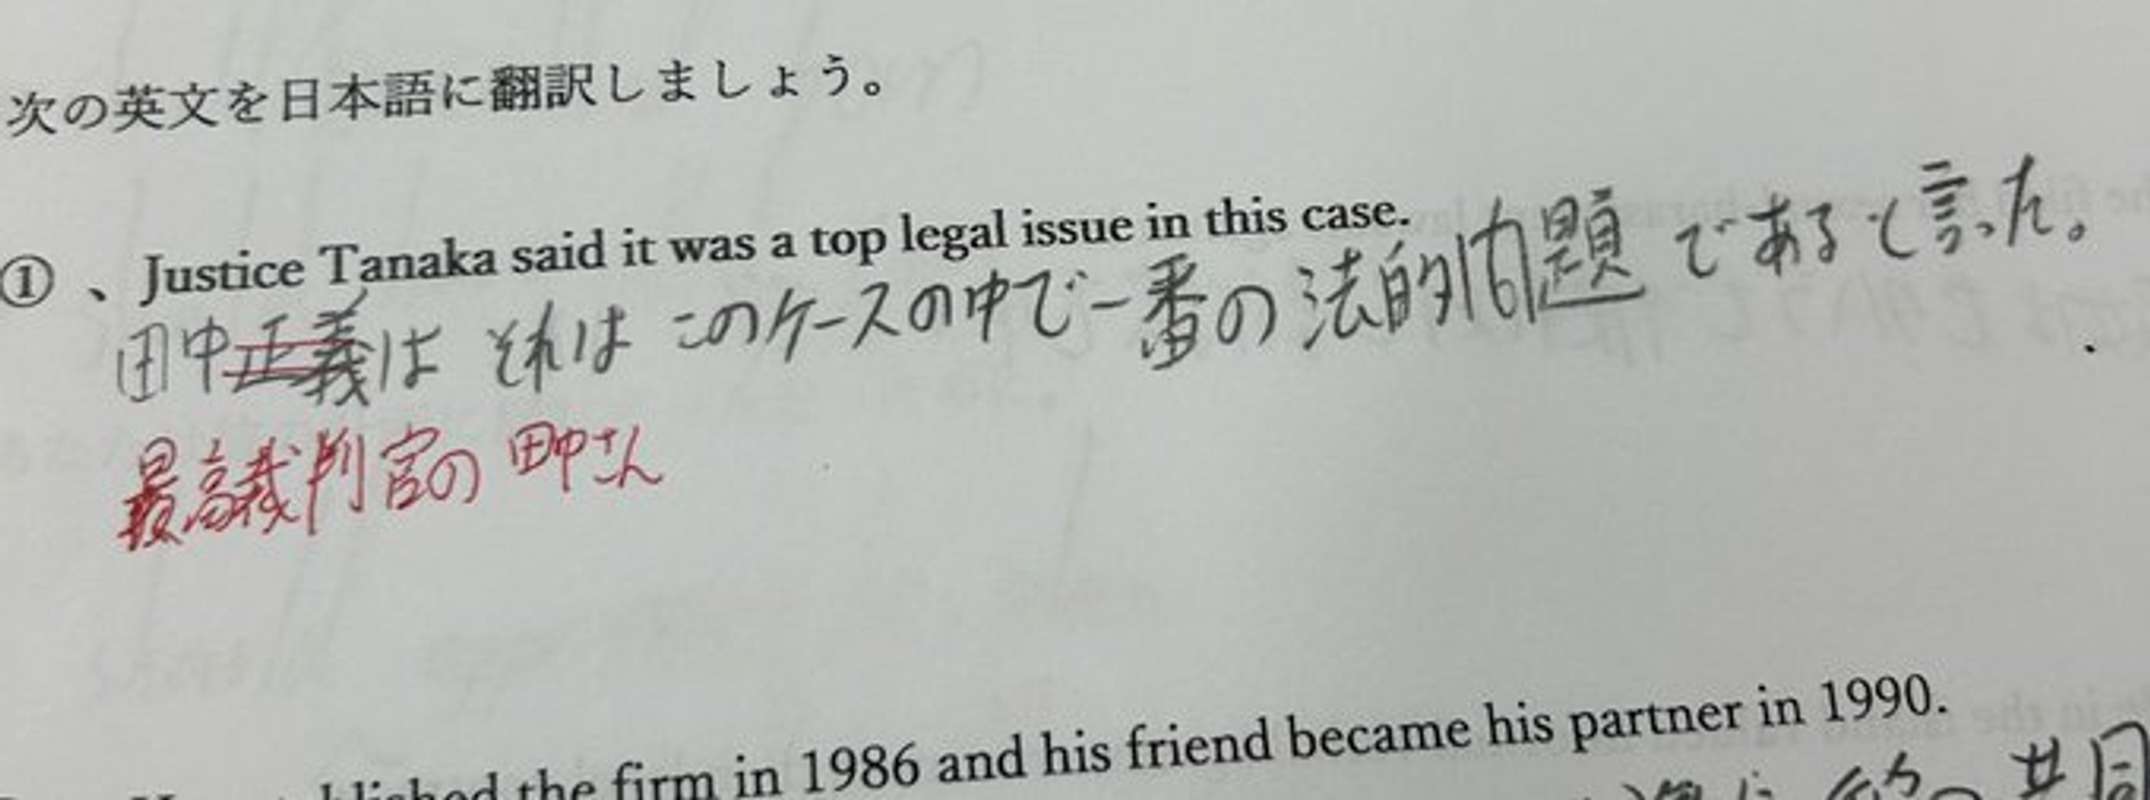 次の英文を日本語に翻訳しましょう。
① 、Justice Tanaka said it was a top legal issue in this case.
田中正義は それは このケースの中で一番の法的問題 であると言った。
最高裁判官の 田中さん
the firm in 1986 and his friend became his partner in 1990.
共同